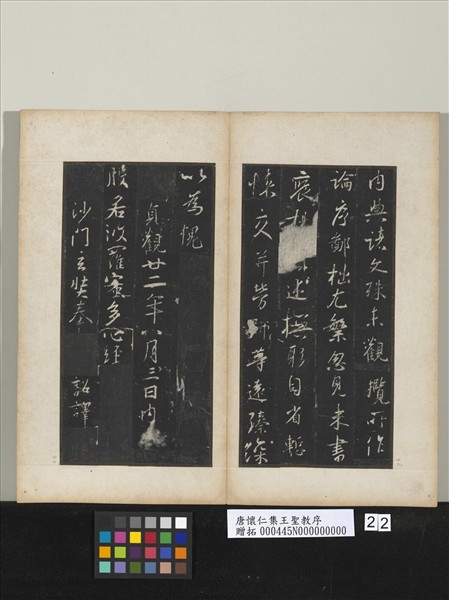 內典諸文殊未觀攬所作
論序鄙拙尤繁忽見來書
褒述撫躬自省慙
悚交并勞師等遠臻深
以為愧
貞觀廿二年八月三日內
般若波羅蜜多心經
沙門玄奘奉 詔譯
唐懷仁集王聖教序
贈拓 000445N000000000
22